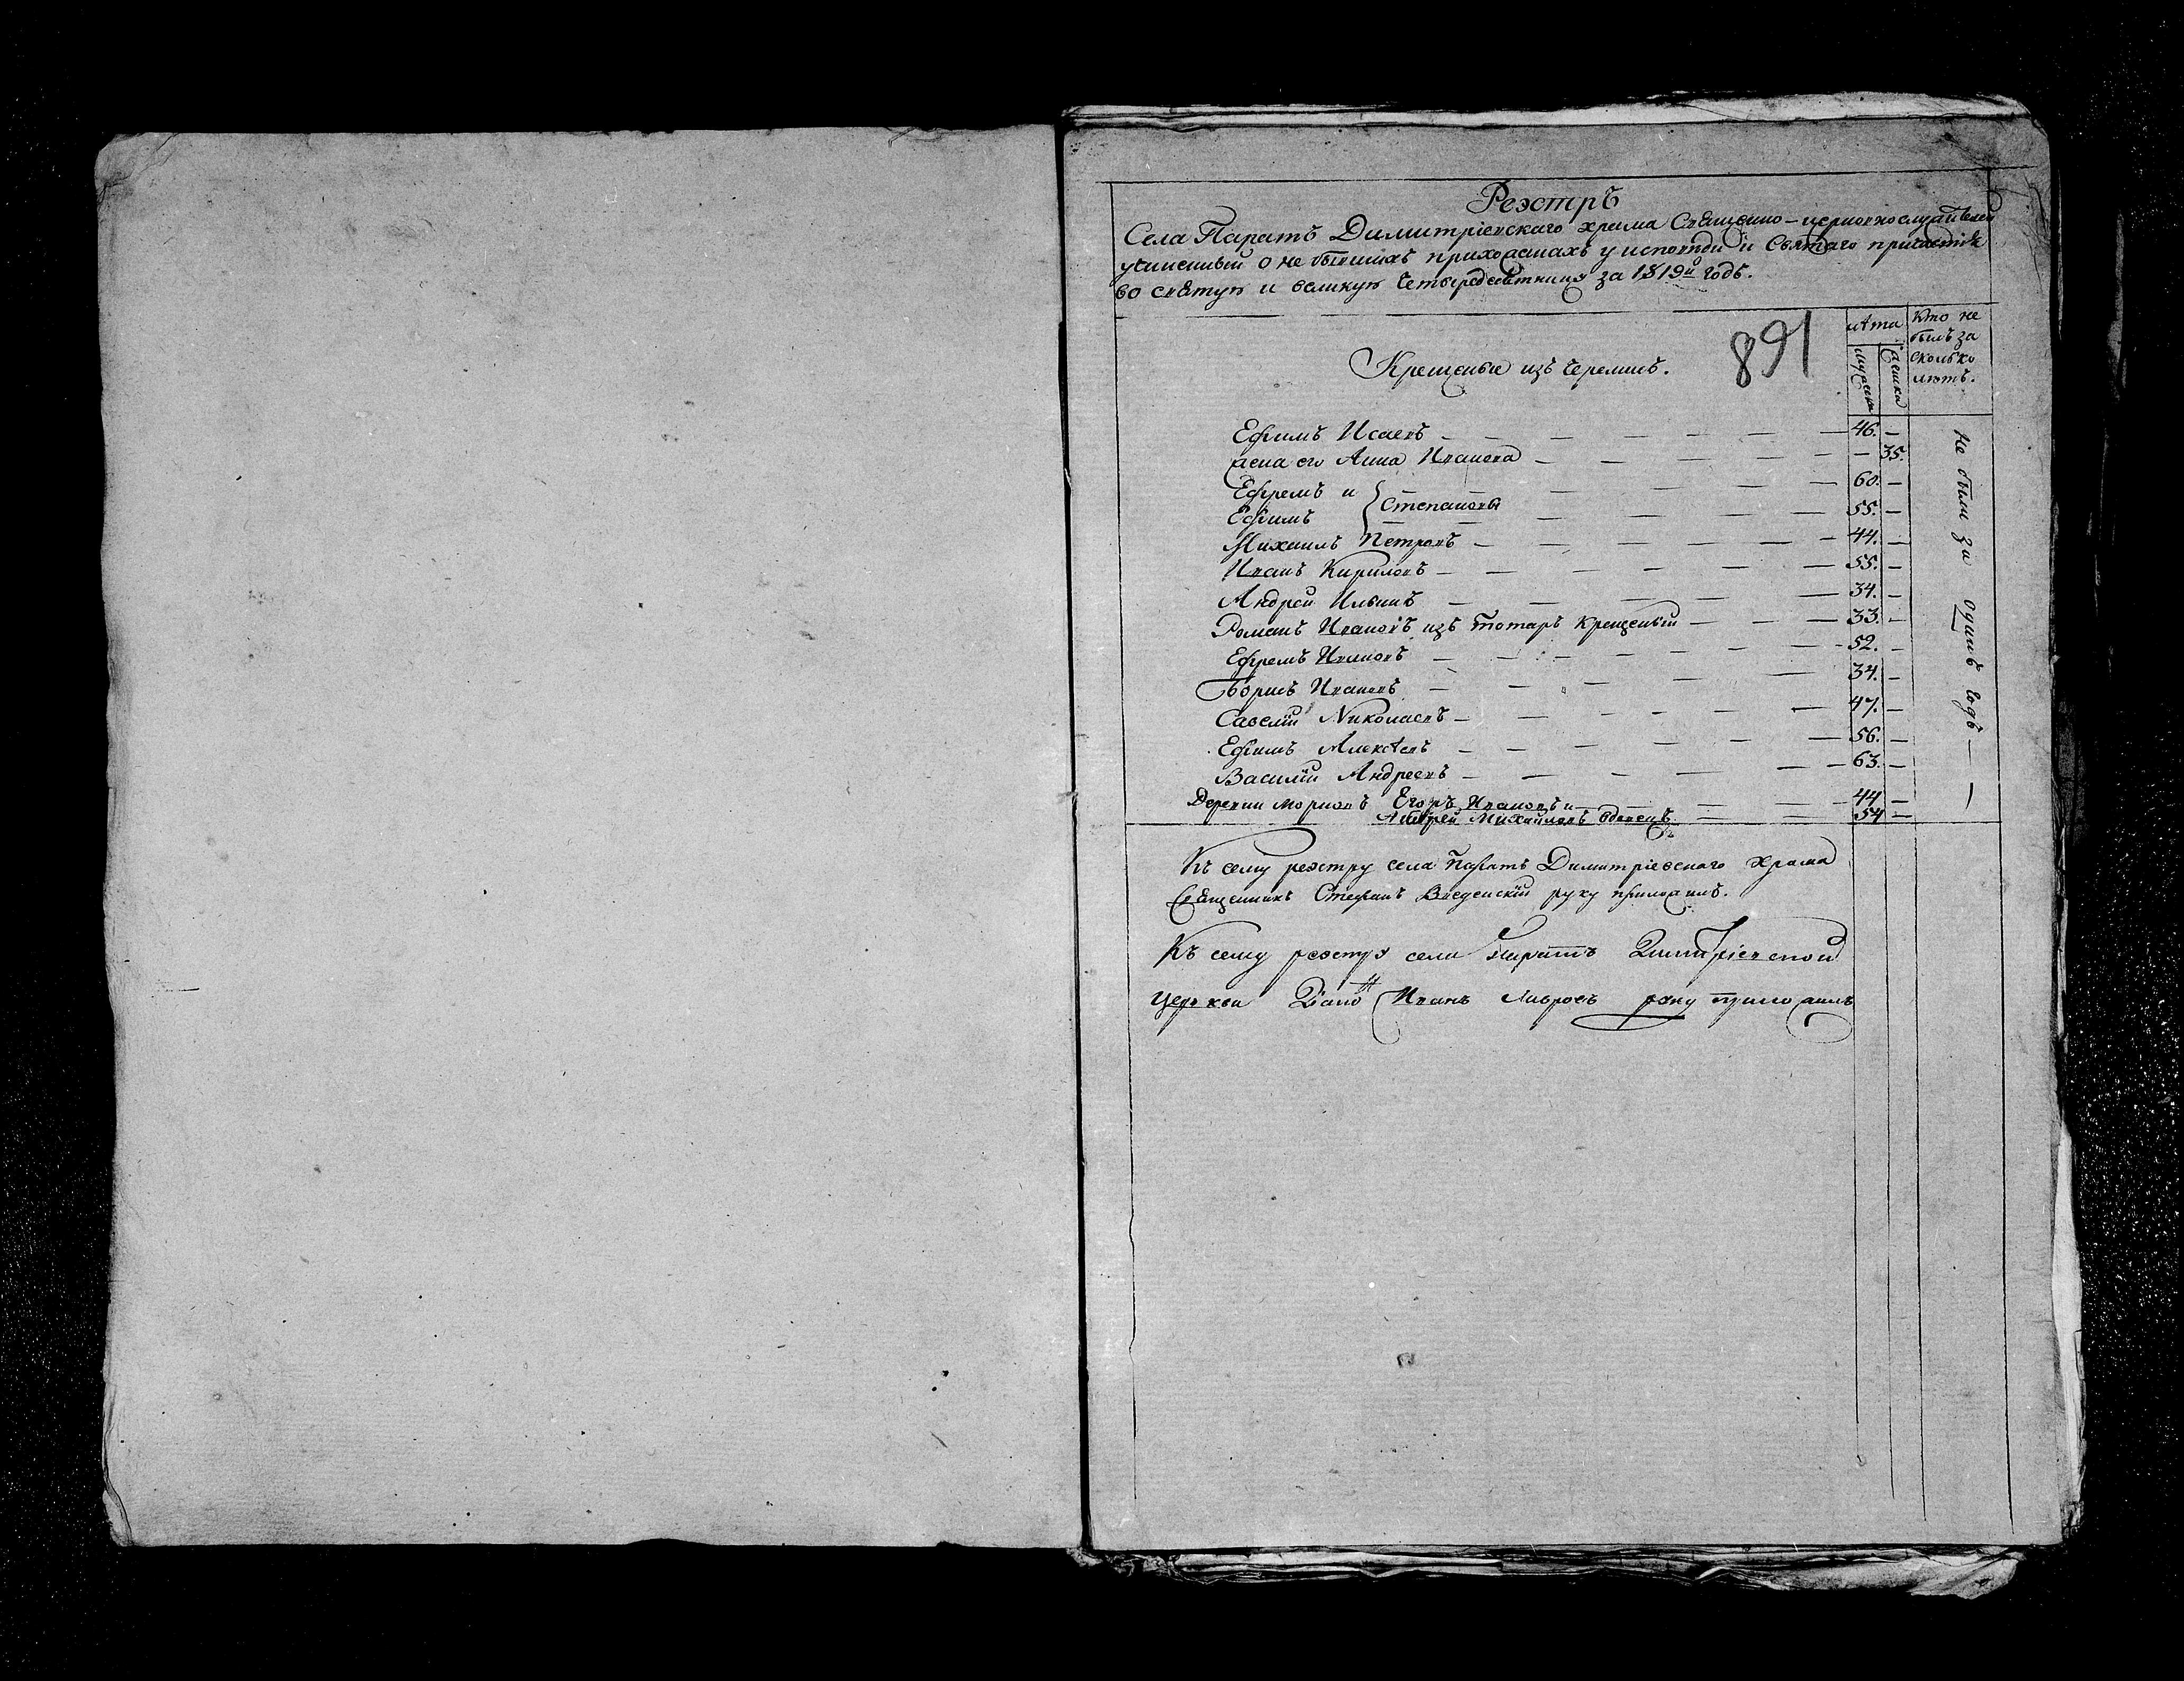 Реэстръ
Села Паратъ Димитріевскаго храма Священно-церковнослужителей
учиненный о не бывшихъ прихожанахъ у исповѣди и Святаго причастія
во святую и великую Четыредесятницу за 1819й годъ.
Крещеные изъ черемисъ.
891
лѣта
мужеска
женска
Кто не
былъ за
сколько
лѣтъ.
Ефимъ Исаевъ — 46. —
жена его Анна Иванова — — 35.
Ефремъ и } Степановы — 60. —
Ефимъ — 55. —
Михаилъ Петровъ — 44. —
Иванъ Кириловъ — 55. —
Андрей Ильинъ — 34. —
Романъ Ивановъ изъ тотаръ крещеный — 33. —
Ефремъ Ивановъ — 52. —
Борисъ Ивановъ — 34. —
Савелій Николаевъ — 47. —
Ефимъ Алексѣевъ — 56. —
Василій Андреевъ — 63. —
Деревни Егоръ Ивановъ и — 44 —
Андрей Михайловъ вдовецъ — 54 —
Не были за одинъ годъ —
Къ сему реэстру села Паратъ Димитріевскаго храма
Священникъ Стефанъ Введенскій руку приложилъ.
Къ сему реэстру села Паратъ Димитріевской
Церкви Иванъ Лавровъ руку приложилъ